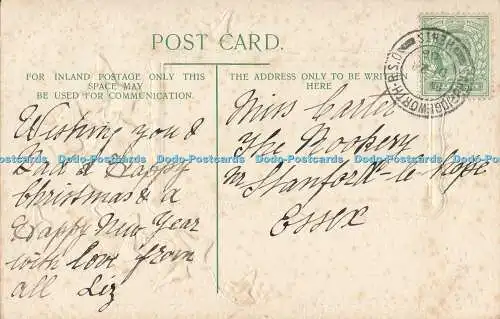 POST CARD.
FOR INLAND POSTAGE ONLY THIS
SPACE MAY
BE USED FOR COMMUNICATION.
THE ADDRESS ONLY TO BE WRITTEN
HERE
Wishing you &
Dad a Happy
Christmas & a
Happy New Year
with love from
all Liz
Miss Carter
The Rookery
Nr Stanford-le-Hope
Essex
Dodo-Postcards Dodo-Postcards Dodo-Postcards Dodo-Postcards Dodo-Postcards